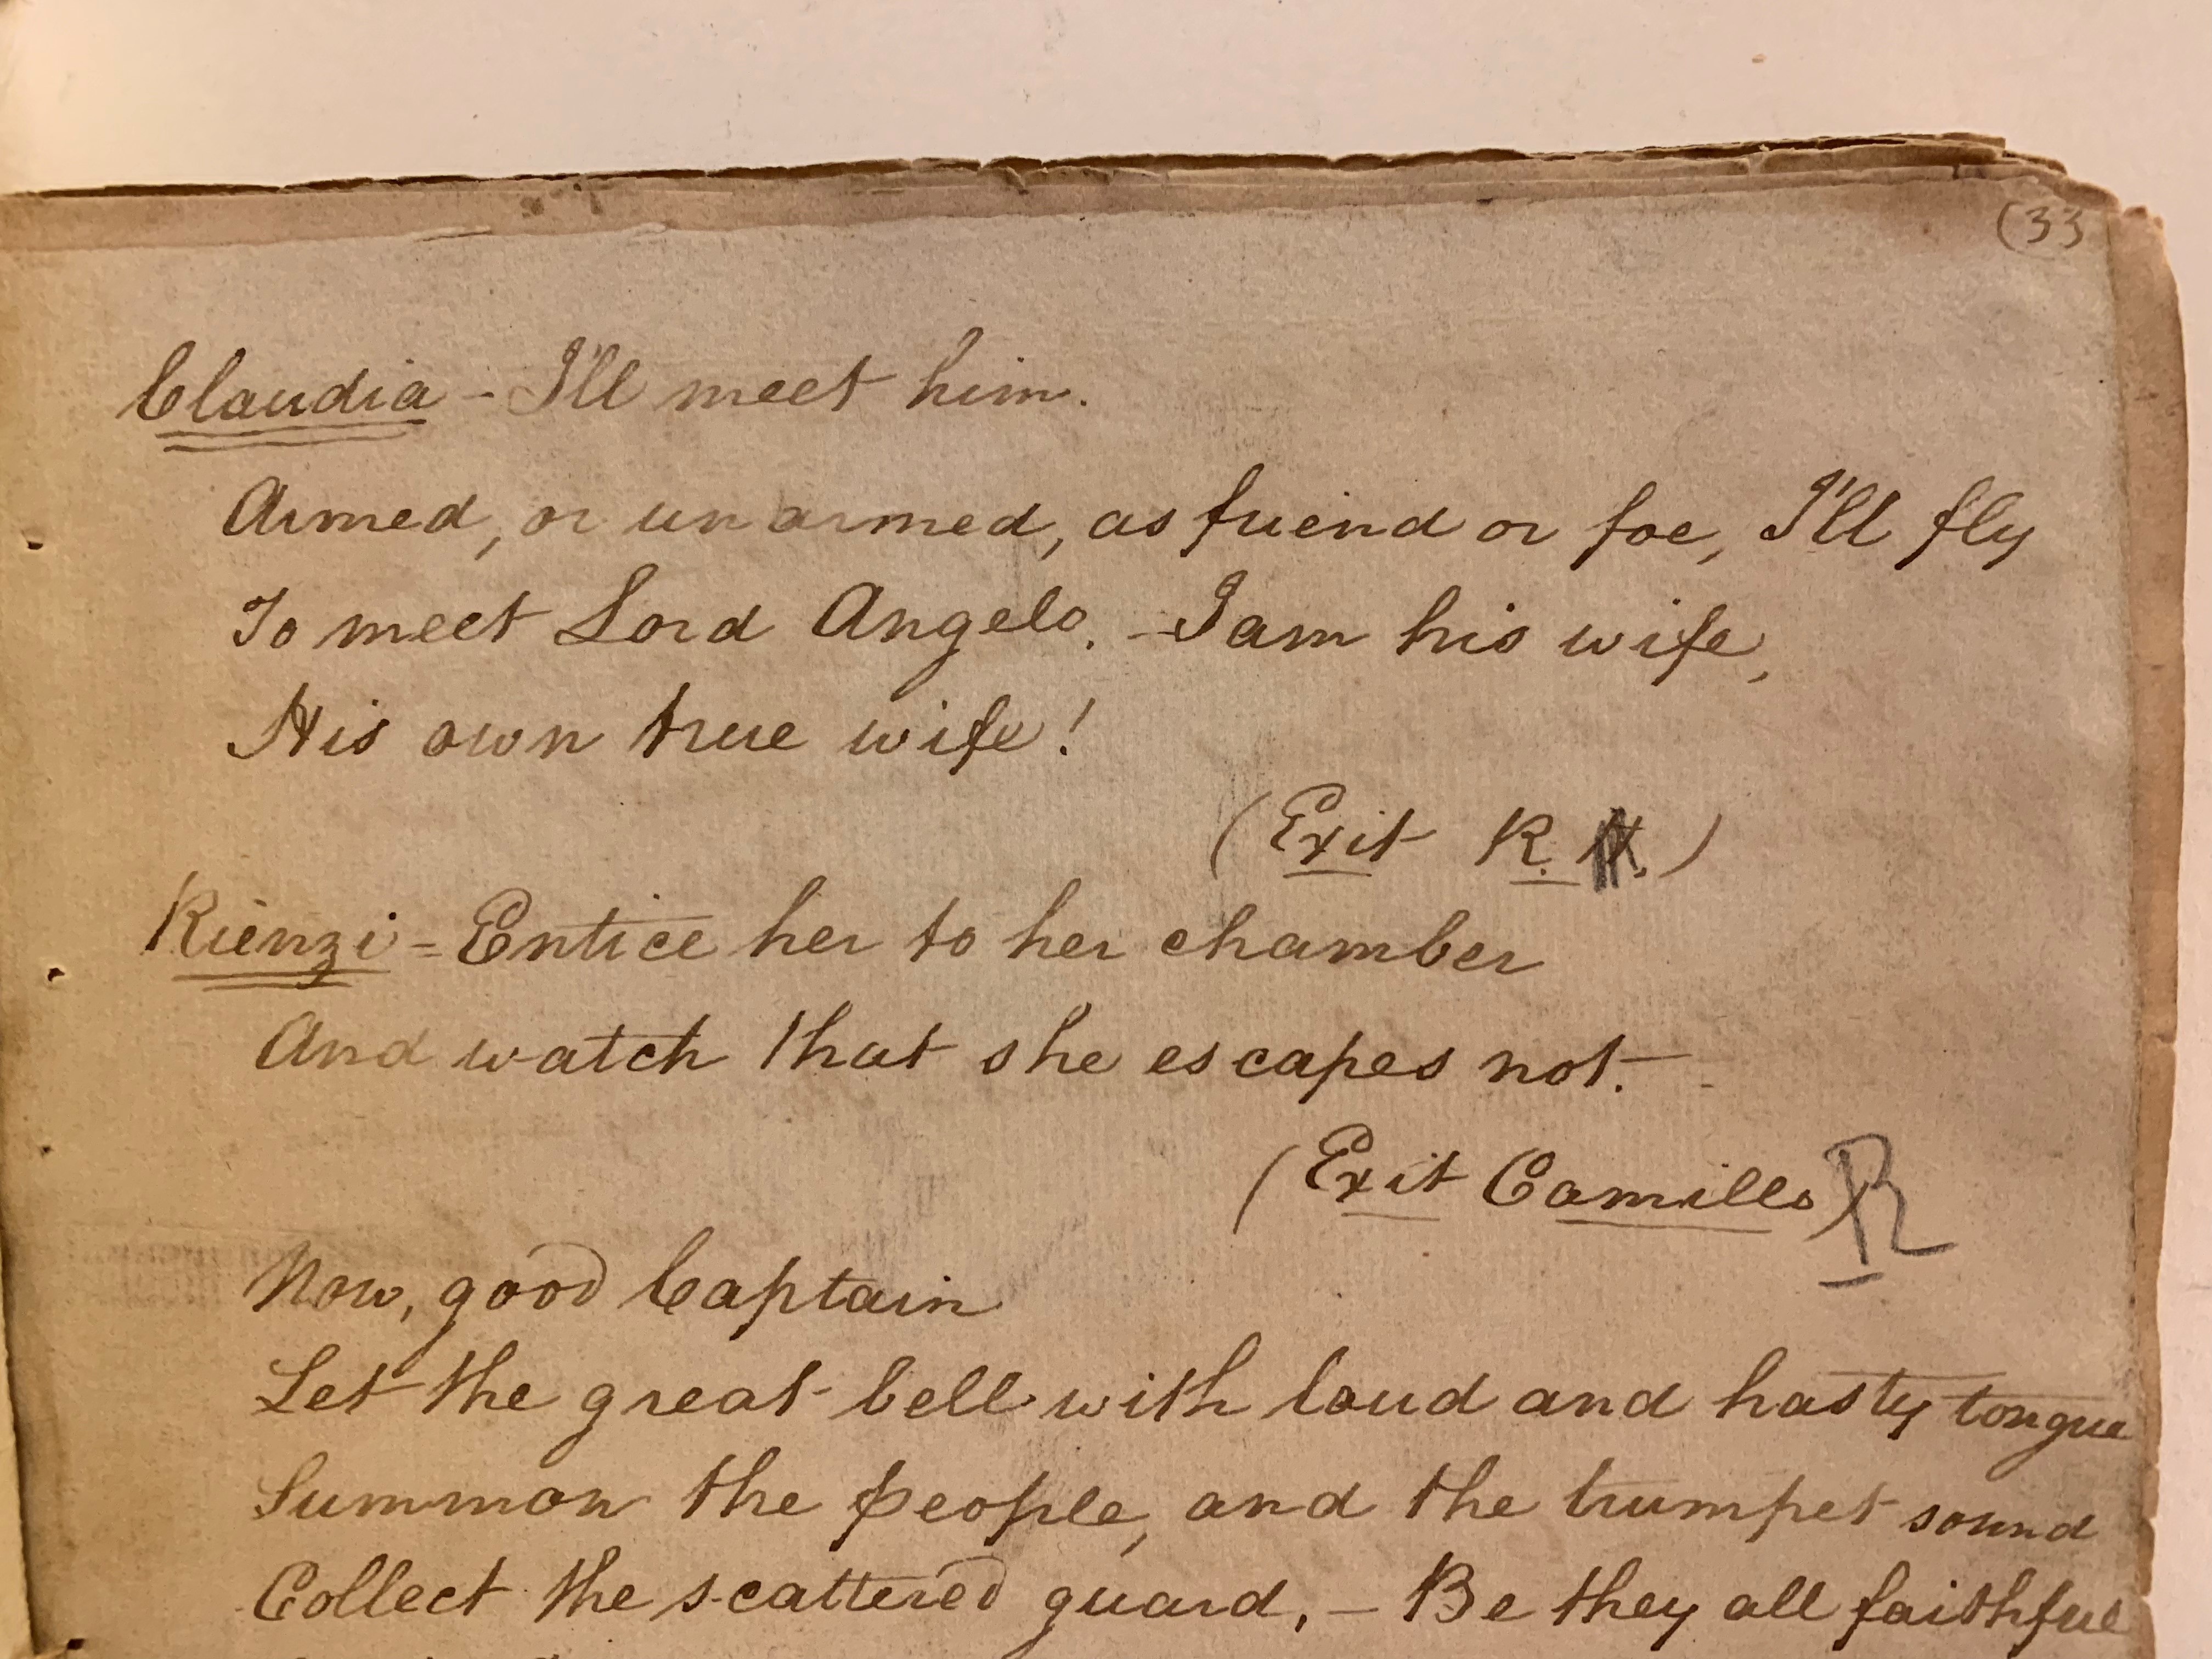 (33
Claudia - I'll meet him.
Armed, or unarmed, as friend or foe, I'll fly
To meet Lord Angelo. - I am his wife,
His own true wife!
(Exit R. H.)
Rienzi = Entice her to her chamber
And watch that she escapes not. -
(Exit Camillo) R
Now, good Captain
Let the great bell with loud and hasty tongue
Summon the people, and the trumpet sound
Collect the scattered guard, - Be they all faithful